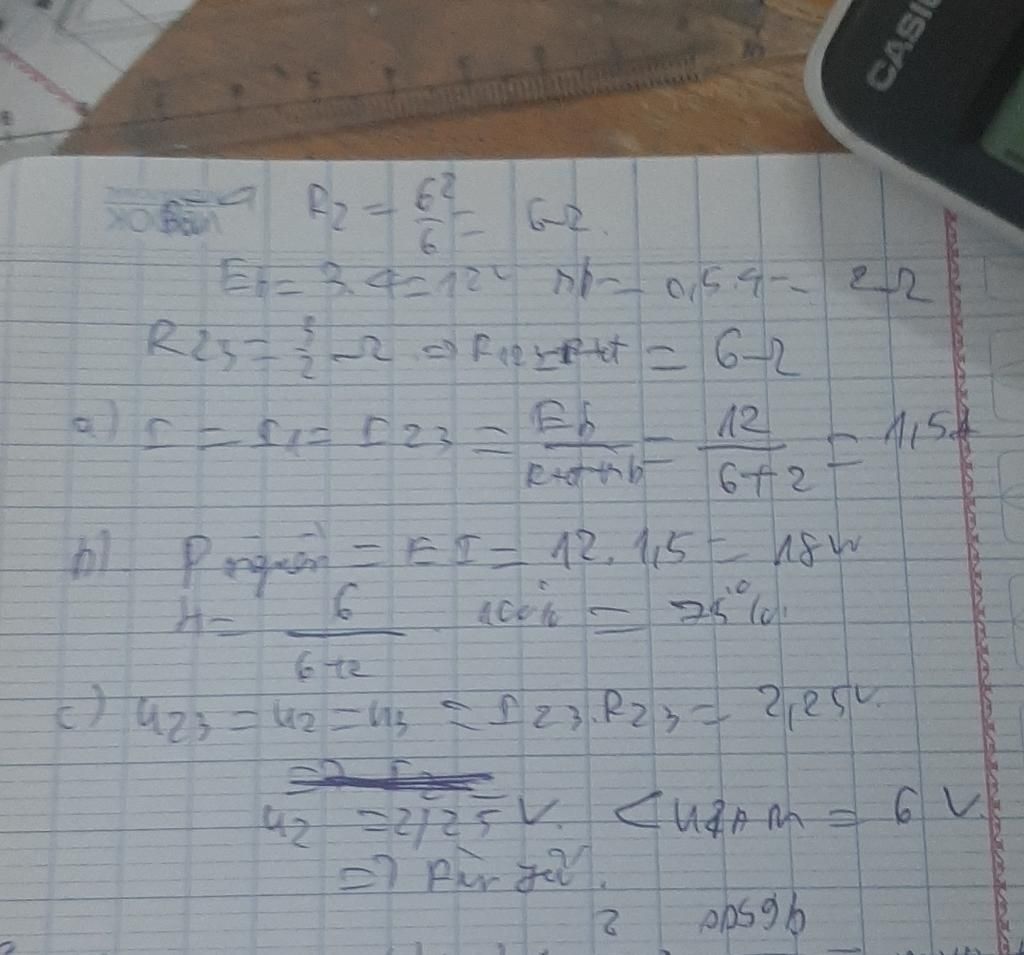 CASIO
R2 = 6²/6 = 6Ω.
Eb = 3.4 = 12V rb = 0,5.4 = 2Ω
R23 = 3/2 Ω => = 6Ω
a) I = I1 = I23 = Eb/Rtđ+rb = 12/6+2 = 1,5A
b) P nguồn = EI = 12.1,5 = 18W
H = 6/6+2 100% = 75%.
c) U23 = U2 = U3 = I23.R23 = 2,25V.
U2 = 2,25V. < = 6V.
=>
2